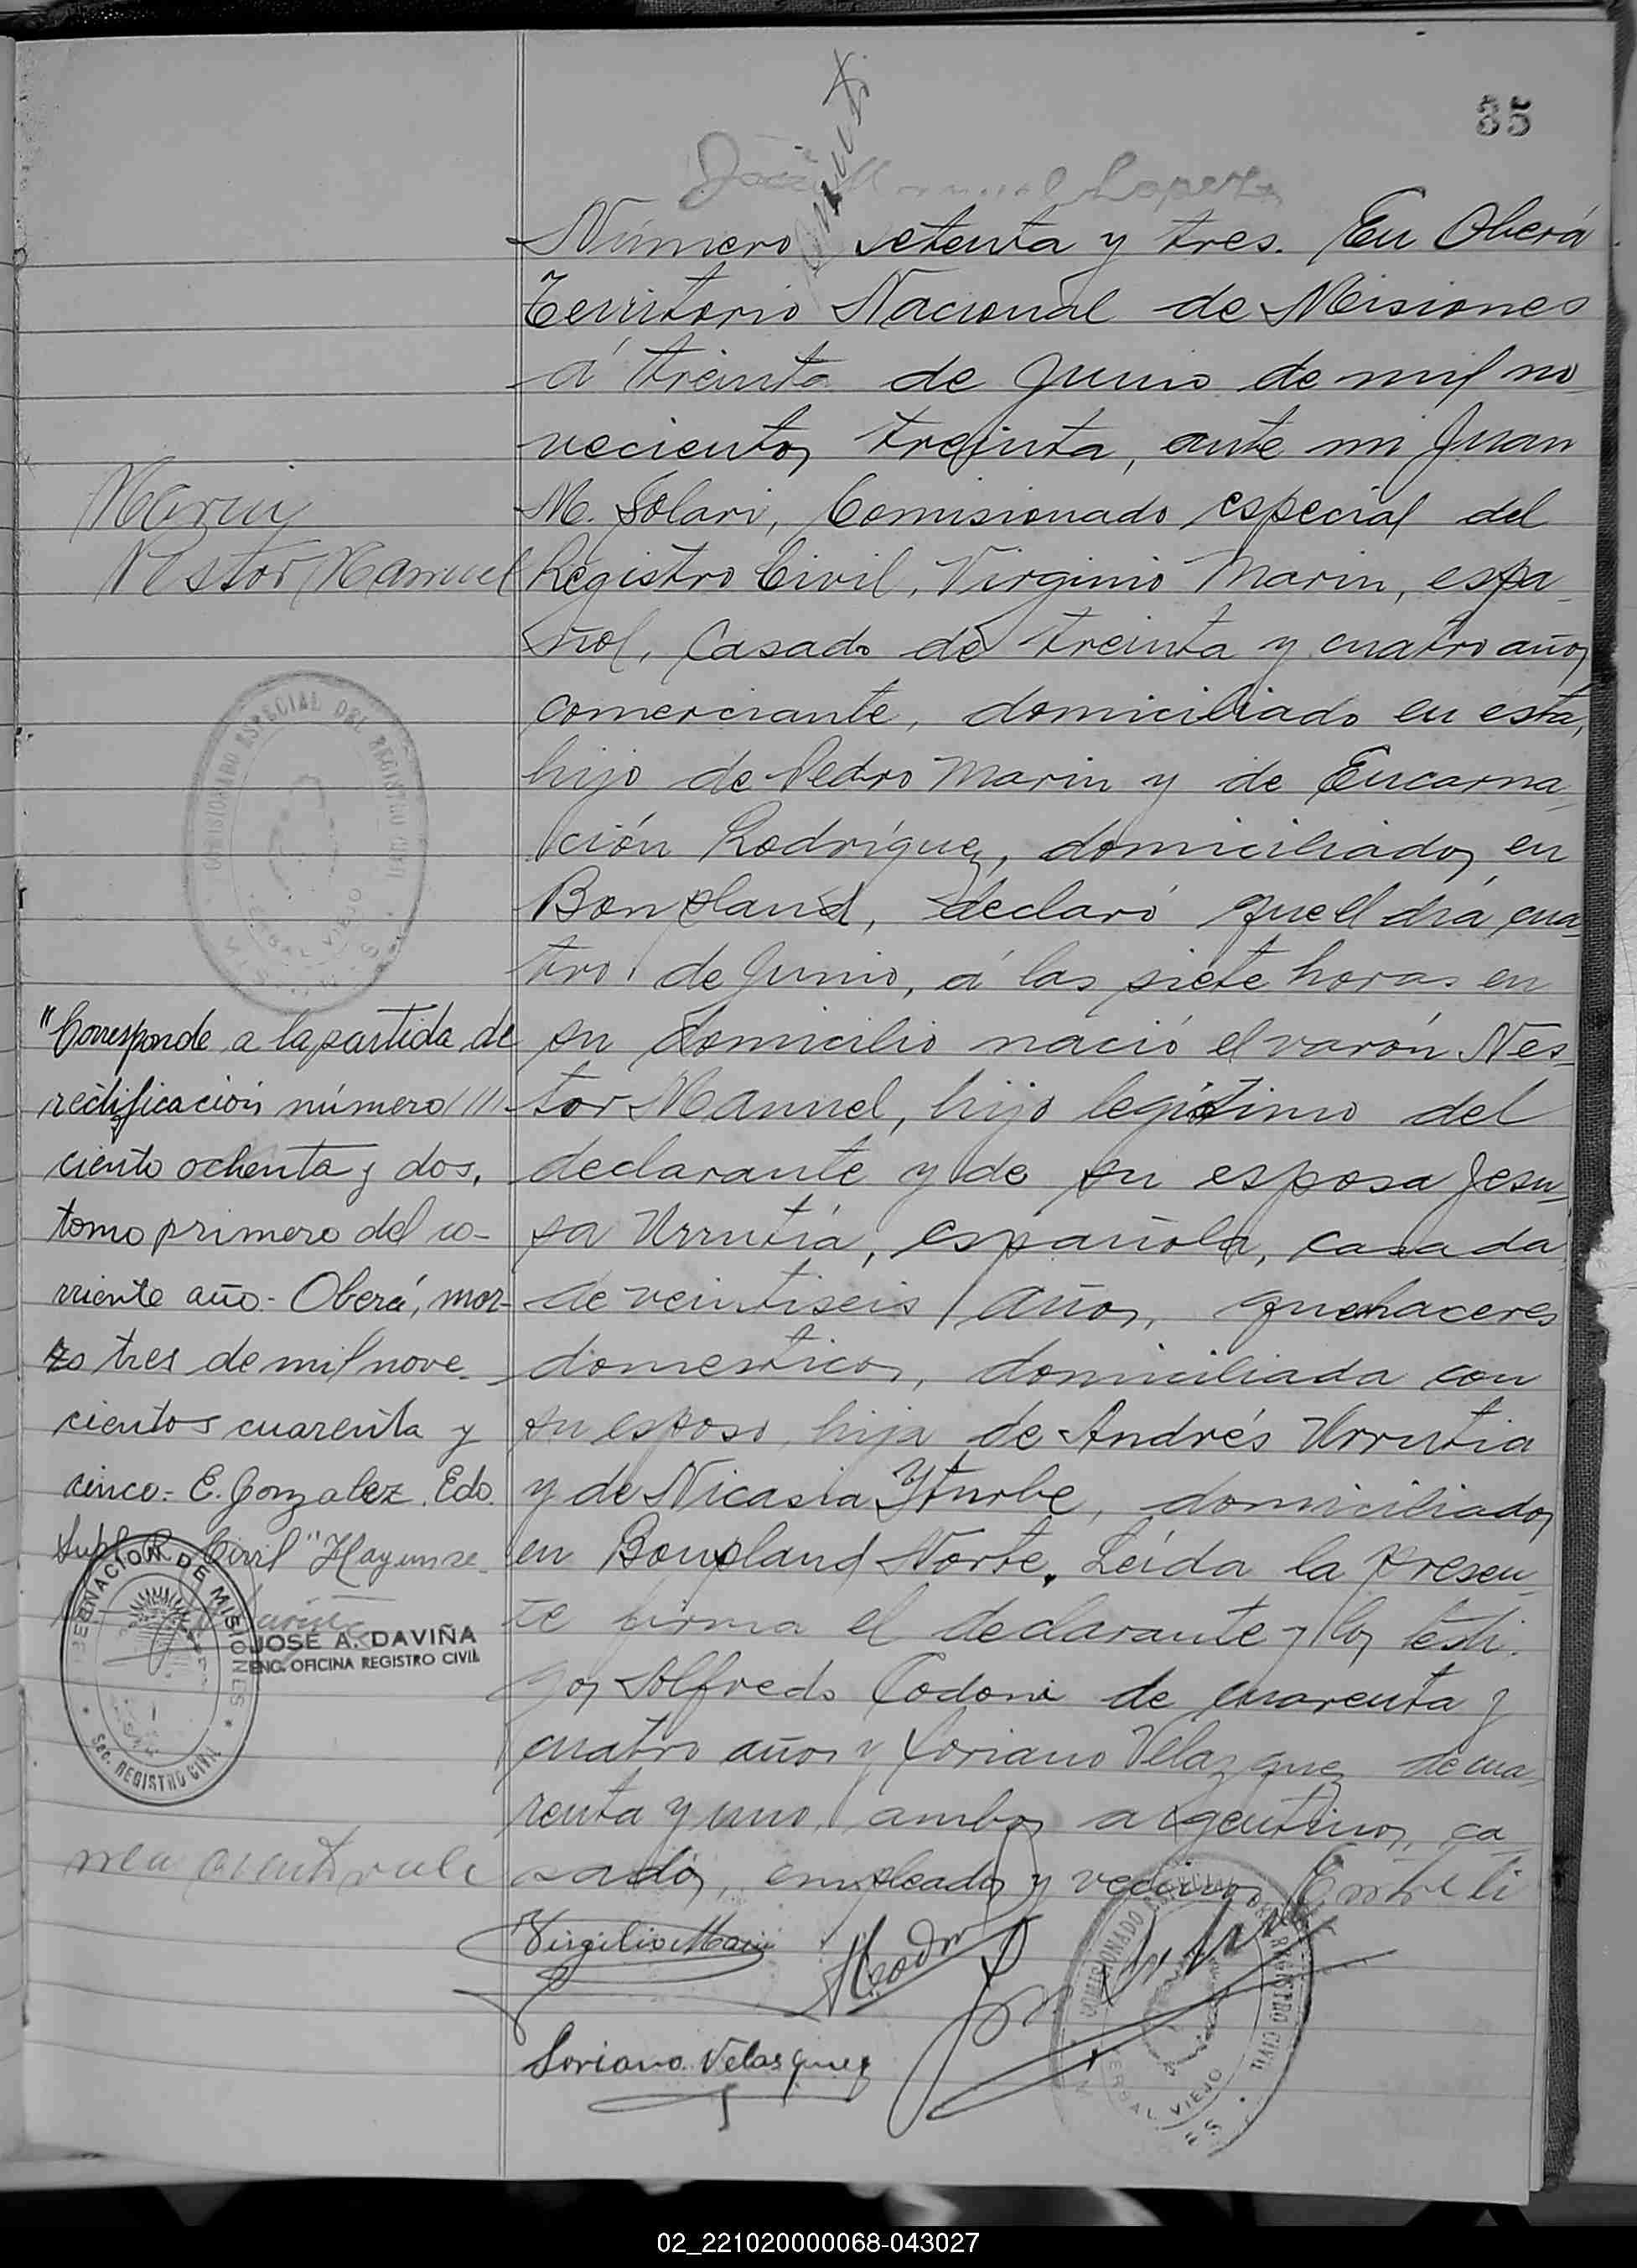 35
José Manuel Lopez
Número setenta y tres. En Oberá
Territorio Nacional de Misiones
á treinta de Junio de mil no
vecientos treinta, ante mi Juan
M. Solari, Comisionado especial del
Marin
Nestor Manuel
Registro Civil, Virginio Marin, espa
ñol, casado de treinta y cuatro años
comerciante, domiciliado en ésta,
hijo de Pedro Marin y de Encarna
ción Rodríguez, domiciliados en
Bonpland, declaró que el dia cua
tro de Junio, á las siete horas en
su domicilio nació el varón Nes
tor Manuel, hijo legítimo del
declarante y de su esposa Jesu
sa Urrutia, española, casada
de veintiseis años, quehaceres
domesticos, domiciliada con
su esposo, hija de Andrés Urrutia
y de Nicasia Yturbe, domiciliados
en Bonpland Norte. Leida la presen
te firma el declarante y los testi
gos Alfredo Codoni de cuarenta y
cuatro años y Soriano Velazquez de cua
renta y uno, ambos argentinos, ca
sados, empleados y vecinos. Entre li
COMISIONADO ESPECIAL DEL REGISTRO CIVIL
YERBAL VIEJO
"Corresponde a la partida de
rectificación número ///
ciento ochenta y dos,
tomo primero del co-
rriente año.- Oberá, mar-
zo tres de mil nove
cientos cuarenta y
cinco.- E. Gonzalez. Edo.
Supl. R. Civil"
GOBERNACION DE MISIONES
SEC. REGISTRO CIVIL
JOSE A. DAVIÑA
ENC. OFICINA REGISTRO CIVIL
Virgilio Marin
Soriano Velasquez
COMISIONADO ESPECIAL DEL REGISTRO CIVIL
YERBAL VIEJO
02_221020000068-043027